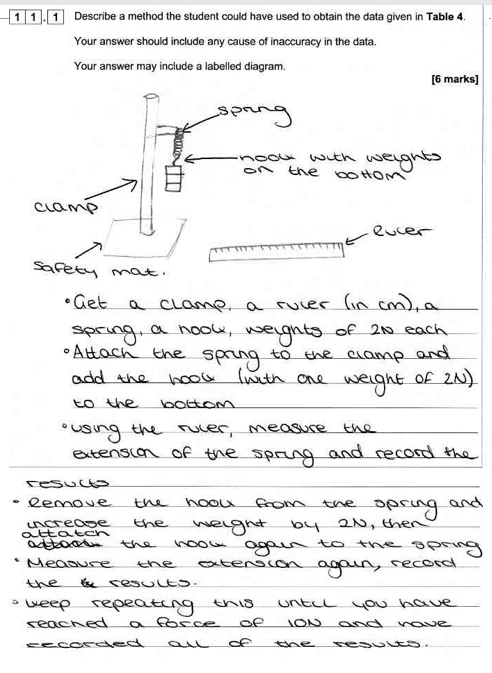 11.1 Describe a method the student could have used to obtain the data given in Table 4.
Your answer should include any cause of inaccuracy in the data.
Your answer may include a labelled diagram.
[6 marks]
spring
hook with weights
on the bottom
clamp
ruler
safety mat.
• Get a clamp, a ruler (in cm), a
spring, a hook, weights of 2N each
• Attach the spring to the clamp and
add the hook (with one weight of 2N)
to the bottom
• using the ruler, measure the
extension of the spring and record the
results
• Remove the hook from the spring and
increase the weight by 2N, then
attatch the hook again to the spring
• Measure the extension again, record
the results.
• keep repeating this until you have
reached a force of 10N and have
recorded all of the results.